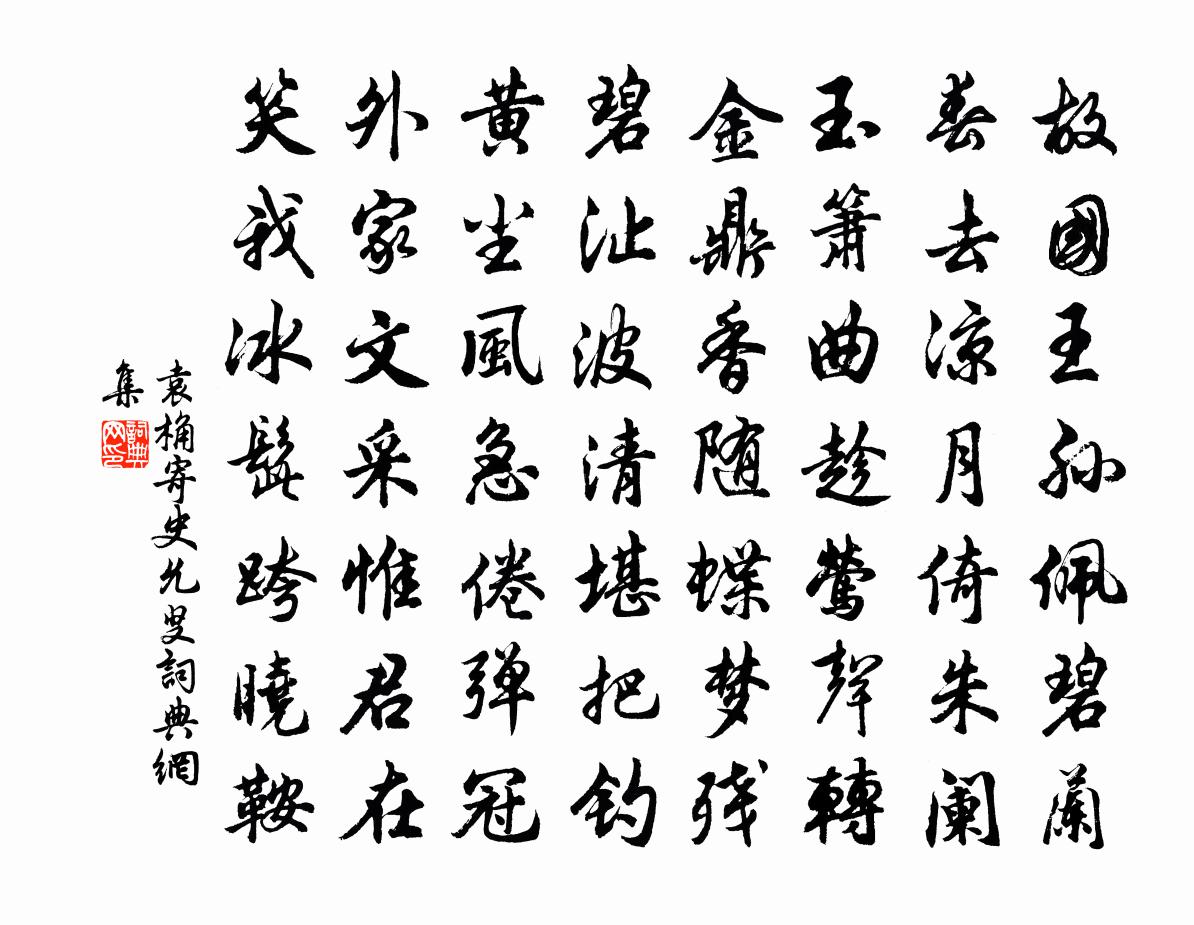 故國王孫佩碧蘭
春去涼月倚朱闌
玉簫曲趁鶯聲轉
金鼎香随蝶梦残
碧沚波清堪把釣
黄尘風急倦彈冠
外家文采惟君在
笑我冰髭跨曉鞍
袁桷寄史允叟詞典網
集
詞典网印